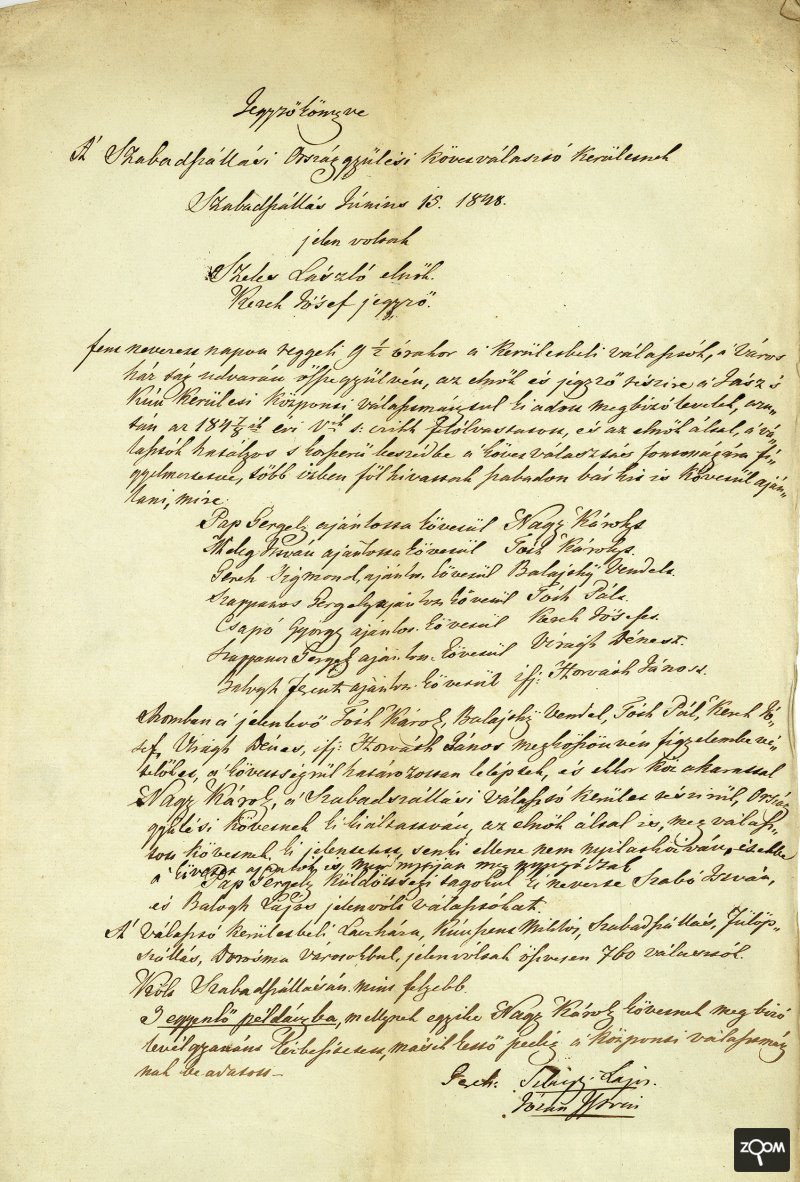 Jegyzőkönyve
A' Szabadszállási Országgyülési követválasztó kerületnek
Szabadszállás Június 15. 1848.
jelen voltak
Szeles László elnök.
Kerek József jegyző.
fent nevezett napon reggeli 9 1/2 órakor a' kerületbeli választók, a' Város
ház tág udvarán öszvegyülvén, az elnök és jegyző részire a' Jász és
Kún Kerületi központi választmánytul ki adott megbizó levelet, azu-
tán az 1847/8ik évi Vik t. czikk felólvastatott, és az elnök által, a' vá-
lasztók hatályos s beszédbe a' követválasztás fontosságára fi-
gyelmeztetve, több izben fölhivattak szabadon bár kit is követül aján-
lani, mire
Pap Gergely ajánlotta követül Nagy Károlyt
Meleg István ajánlotta követül Tóth Károlyt.
Gerek Sigmond, ajánlot. követül Balajthy Vendelt.
Szappanos Gergely ajánlot. követül Tóth Pált.
Csapó György ajánlot. követül Kerek Józsefet.
Szappanos Gergely ajánlot. követül Virágh Dénest.
Balogh Ferentz ajánlot. követül ifj: Horváth Jánost.
Azomban a' jelenlevő Tóth Károly, Balajthy Vendel, Tóth Pál, Kerek Jó-
sef, Virágh Dénes, ifj: Horváth János megköszönvén figyelembe vé-
telöket, a' követségrül határozottan leléptek, és ekkor köz akarattal
Nagy Károly, a' Szabadszállási Választó kerület részirül, Ország
gyülési követnek ki kiáltatván, az elnök által is, meg válasz-
tott követnek ki jelentetett, senki ellene nem nyilatkozván,
a' követet ajánlók is,
Pap Gergely küldöttségi tagokul ki nevezte Szabó István,
és Balogh Lajos jelenvóló választókat.
A' Választó kerületbeli Laczháza, Kúnszent Miklós, Szabadszállás, Fülöp-
szállás, Dorosma Városokbul, jelen voltak öszvesen 760 választók.
Költ Szabadszálláson mint feljebb.
3 egyenlő példányba, mellynek egyike Nagy Károly követnek megbizó
levélgyanánt kézbesittetett, másik kettő pedig a' központi választmány
nak be adatott –